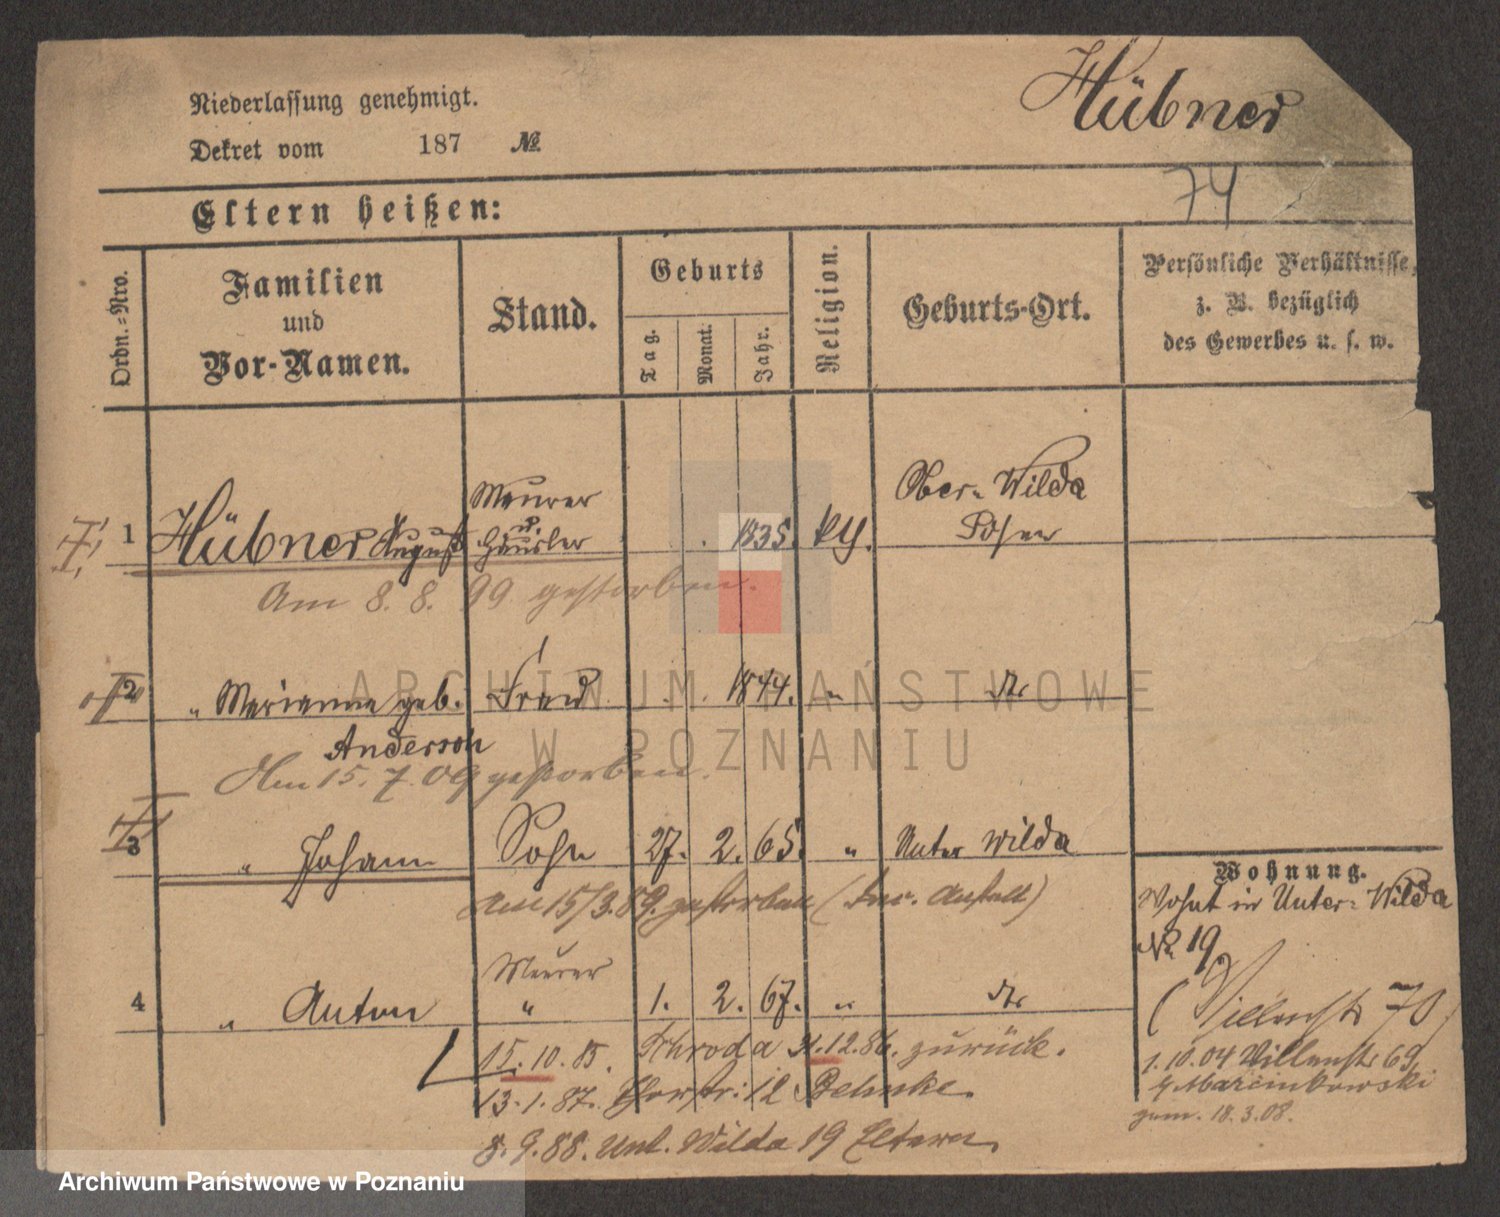 Hübner
Niederlassung genehmigt.
Dekret vom 187 №
74
Eltern heißen:
Ordn.-Nro.
Familien und Vor-Namen.
Stand.
Geburts
Tag.
Monat.
Jahr.
Religion.
Geburts-Ort.
Persönliche Verhältnisse,
z. B. bezüglich
des Gewerbes u. s. w.
Maurer Ober-Wilda
1 Hübner August u. Häusler 1835. kth. Posen
Am 8. 8. 99 gestorben.
2 " Marianne geb. Frau 1844. " dto
Anderson
Am 15. 7. 09 gestorben.
3 " Johann Sohn 27. 2. 65. " Unter Wilda
am 15/3. 89. gestorben (Irr. Anstalt)
Wohnung.
Wohnt in Unter-Wilda
№ 19
Maurer
4 " Anton " 1. 2. 67. " dto
15. 10. 85. Schroda 31.12.86. zurück.
13. 1. 87. 12 Behnke
8. 9. 88. Unt. Wilda 19 Eltern
(Villenstr 70)
1. 10. 04 Villenstr 69
Marcinkowski
18. 3. 08.
ARCHIWUM PAŃSTWOWE
W POZNANIU
Archiwum Państwowe w Poznaniu